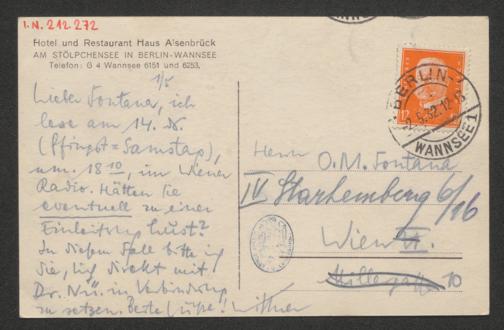 I.N. 212.272
Hotel und Restaurant Haus Alsenbrück
AM STÖLPCHENSEE IN BERLIN-WANNSEE
Telefon: G 4 Wannsee 6151 und 6253.
1/5
Lieber Fontana, ich
lese am 14. ds.
(Pfingst=Samstag),
um 18 10, im Wiener
Radio. Hätten Sie
eventuell zu einer
Einleitung Lust?
In diesem Fall bitte ich
Sie, sich direkt mit
Dr. Nü. in Verbindung
zu setzen. Beste Grüße! Wittner
BERLIN-
2.5.32.12
WANNSEE 1
12
Herrn O.M. Fontana
IV Starhemberg 6/16
Wien
10